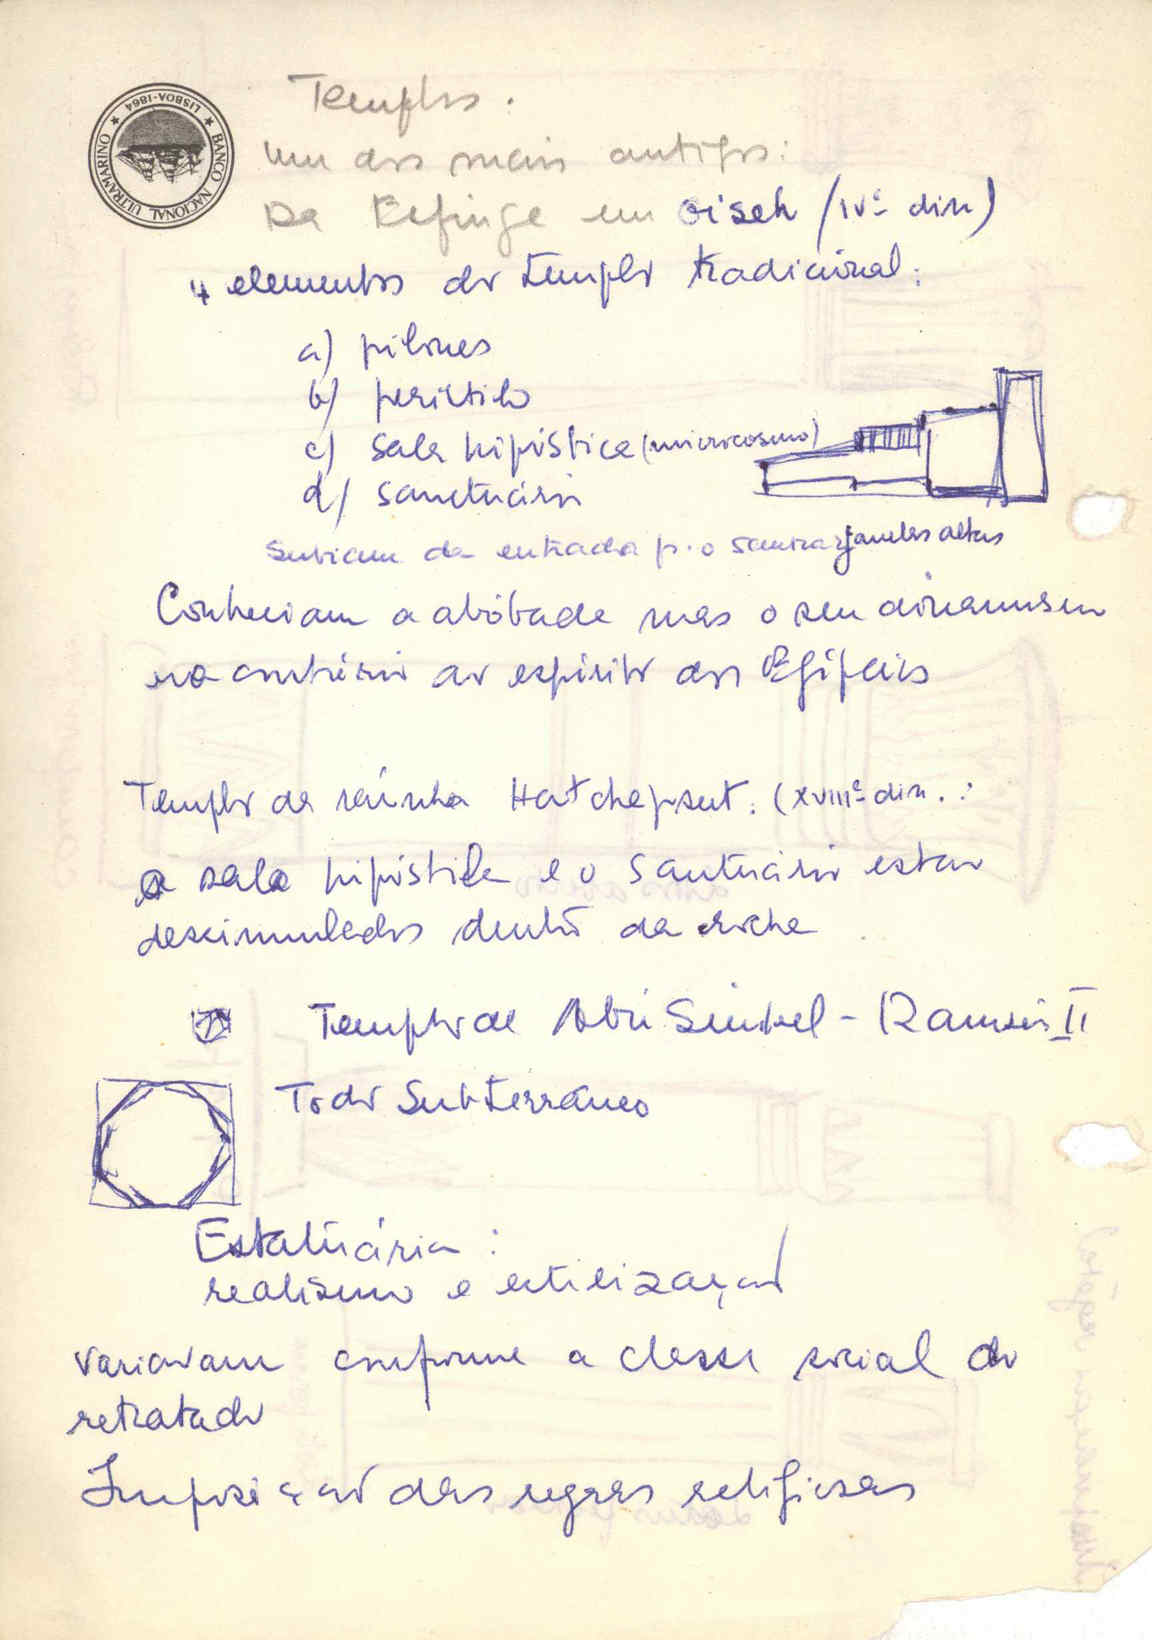 BANCO NACIONAL ULTRAMARINO
LISBOA-1864
Templos:
Um dos mais antigos:
Da Esfinge em Giseh (IVª din)
4 elementos do templo tradicional:
a) pilones
b) peristilo
c) Sala hipóstica (microcosmo)
d) Sanctuário
Subiam da entrada p. o
janelas altas
Conheciam a abóbada mas o seu dinamismo
era contrário ao espírito dos Egípcios
Templo da rainha Hatchepsut. (XVIIIª din.:
a sala hipóstila e o Santuário estão
dessimulados dentro da rocha
Templo de Abu Simbel - Ramsés II
Todo Subterrâneo
Estatuária:
realismo e estilização
Variavam conforme a classe social do
retratado
Imposição das regras religiosas